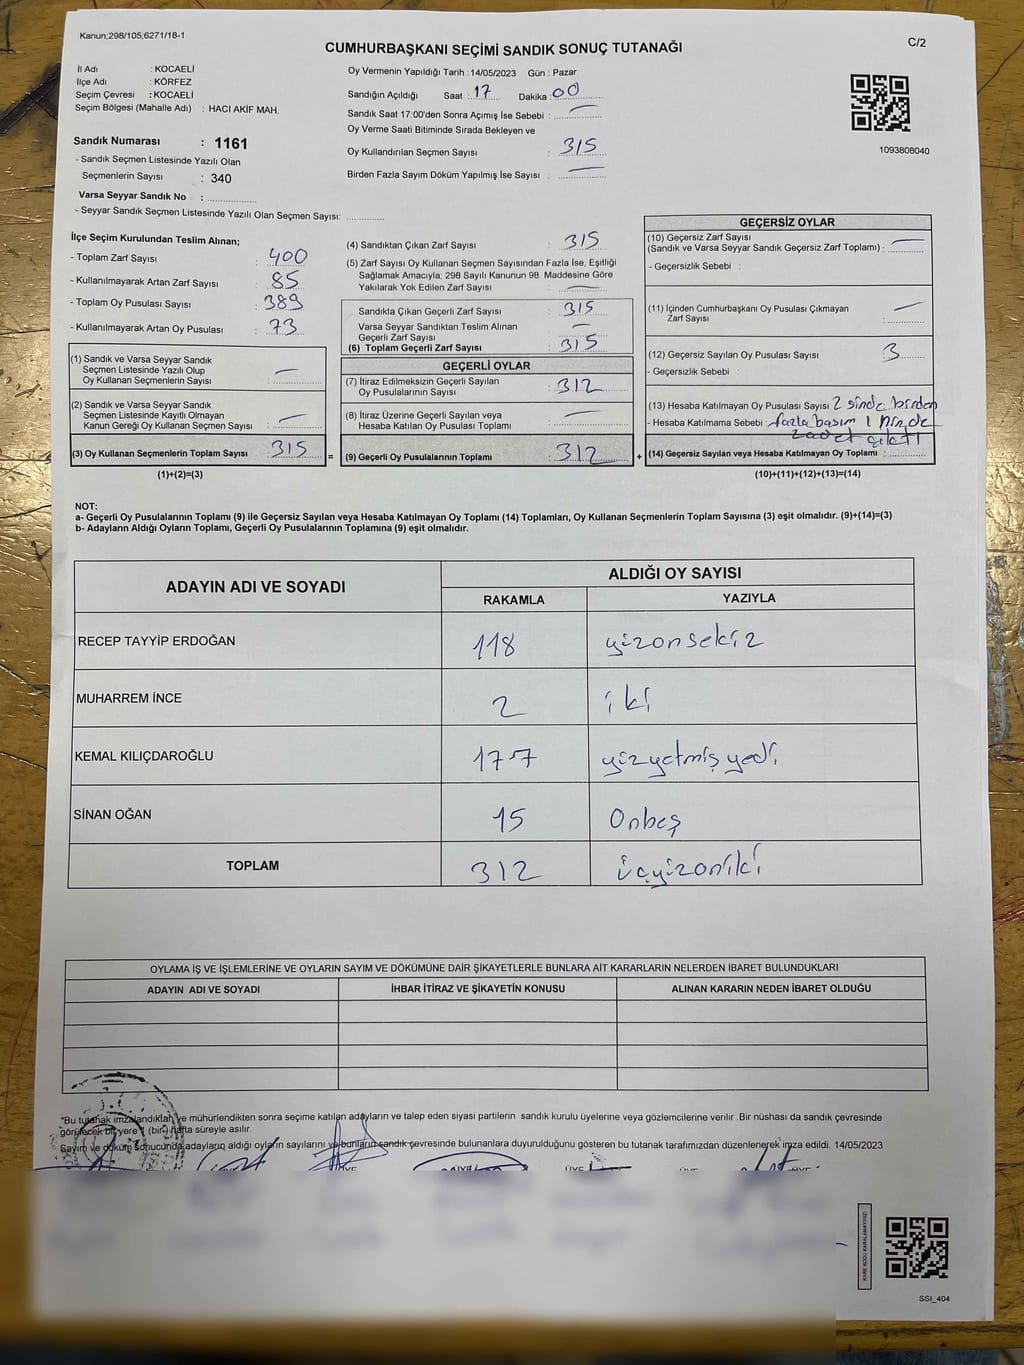 Kanun;298/105;6271/18-1
C/2
CUMHURBAŞKANI SEÇİMİ SANDIK SONUÇ TUTANAĞI
İl Adı : KOCAELİ
İlçe Adı : KÖRFEZ
Seçim Çevresi : KOCAELİ
Seçim Bölgesi (Mahalle Adı) : HACI AKİF MAH.
Sandık Numarası : 1161
- Sandık Seçmen Listesinde Yazılı Olan
Seçmenlerin Sayısı : 340
Varsa Seyyar Sandık No :
- Seyyar Sandık Seçmen Listesinde Yazılı Olan Seçmen Sayısı:
Oy Vermenin Yapıldığı Tarih : 14/05/2023 Gün : Pazar
Sandığın Açıldığı Saat : 17 Dakika : 00
Sandık Saat 17:00'den Sonra Açımış İse Sebebi : —
Oy Verme Saati Bitiminde Sırada Bekleyen ve
Oy Kullandırılan Seçmen Sayısı : 315
Birden Fazla Sayım Döküm Yapılmış İse Sayısı : —
1093808040
İlçe Seçim Kurulundan Teslim Alınan;
- Toplam Zarf Sayısı : 400
- Kullanılmayarak Artan Zarf Sayısı : 85
- Toplam Oy Pusulası Sayısı : 389
- Kullanılmayarak Artan Oy Pusulası : 73
(1) Sandık ve Varsa Seyyar Sandık
Seçmen Listesinde Yazılı Olup
Oy Kullanan Seçmenlerin Sayısı : —
(2) Sandık ve Varsa Seyyar Sandık
Seçmen Listesinde Kayıtlı Olmayan
Kanun Gereği Oy Kullanan Seçmen Sayısı : —
(3) Oy Kullanan Seçmenlerin Toplam Sayısı : 315
(1)+(2)=(3)
(4) Sandıktan Çıkan Zarf Sayısı : 315
(5) Zarf Sayısı Oy Kullanan Seçmen Sayısından Fazla İse, Eşitliği
Sağlamak Amacıyla; 298 Sayılı Kanunun 98. Maddesine Göre
Yakılarak Yok Edilen Zarf Sayısı : —
Sandıkta Çıkan Geçerli Zarf Sayısı : 315
Varsa Seyyar Sandıktan Teslim Alınan
Geçerli Zarf Sayısı : —
(6) Toplam Geçerli Zarf Sayısı : 315
GEÇERLİ OYLAR
(7) İtiraz Edilmeksizin Geçerli Sayılan
Oy Pusulalarının Sayısı : 312
(8) İtiraz Üzerine Geçerli Sayılan veya
Hesaba Katılan Oy Pusulası Toplamı : —
= (9) Geçerli Oy Pusulalarının Toplamı : 312 +
GEÇERSİZ OYLAR
(10) Geçersiz Zarf Sayısı
(Sandık ve Varsa Seyyar Sandık Geçersiz Zarf Toplamı) : —
- Geçersizlik Sebebi :
(11) İçinden Cumhurbaşkanı Oy Pusulası Çıkmayan
Zarf Sayısı : —
(12) Geçersiz Sayılan Oy Pusulası Sayısı : 3
- Geçersizlik Sebebi :
(13) Hesaba Katılmayan Oy Pusulası Sayısı 2 sinde birden
- Hesaba Katılmama Sebebi : fazla basım 1 ninde
zaret çıktı
(14) Geçersiz Sayılan veya Hesaba Katılmayan Oy Toplamı :
(10)+(11)+(12)+(13)=(14)
NOT:
a- Geçerli Oy Pusulalarının Toplamı (9) ile Geçersiz Sayılan veya Hesaba Katılmayan Oy Toplamı (14) Toplamları, Oy Kullanan Seçmenlerin Toplam Sayısına (3) eşit olmalıdır. (9)+(14)=(3)
b- Adayların Aldığı Oyların Toplamı, Geçerli Oy Pusulalarının Toplamına (9) eşit olmalıdır.
ADAYIN ADI VE SOYADI
ALDIĞI OY SAYISI
RAKAMLA YAZIYLA
RECEP TAYYİP ERDOĞAN 118 yüzonsekiz
MUHARREM İNCE 2 iki
KEMAL KILIÇDAROĞLU 177 yüzyetmişyedi
SİNAN OĞAN 15 Onbeş
TOPLAM 312 üçyüzoniki
OYLAMA İŞ VE İŞLEMLERİNE VE OYLARIN SAYIM VE DÖKÜMÜNE DAİR ŞİKAYETLERLE BUNLARA AİT KARARLARIN NELERDEN İBARET BULUNDUKLARI
ADAYIN ADI VE SOYADI İHBAR İTİRAZ VE ŞİKAYETİN KONUSU ALINAN KARARIN NEDEN İBARET OLDUĞU
*Bu tutanak imzalandıktan ve mühürlendikten sonra seçime katılan adayların ve talep eden siyasi partilerin sandık kurulu üyelerine veya gözlemcilerine verilir .Bir nüshası da sandık çevresinde
görülecek bir yere 1 (bir) hafta süreyle asılır.
Sayım ve döküm sonucunda adayların aldığı oyların sayılarını ve bunların sandık çevresinde bulunanlara duyurulduğunu gösteren bu tutanak tarafımızdan düzenlenerek imza edildi. 14/05/2023
KARE KODU KARALAMAYINIZ!
SSI_404